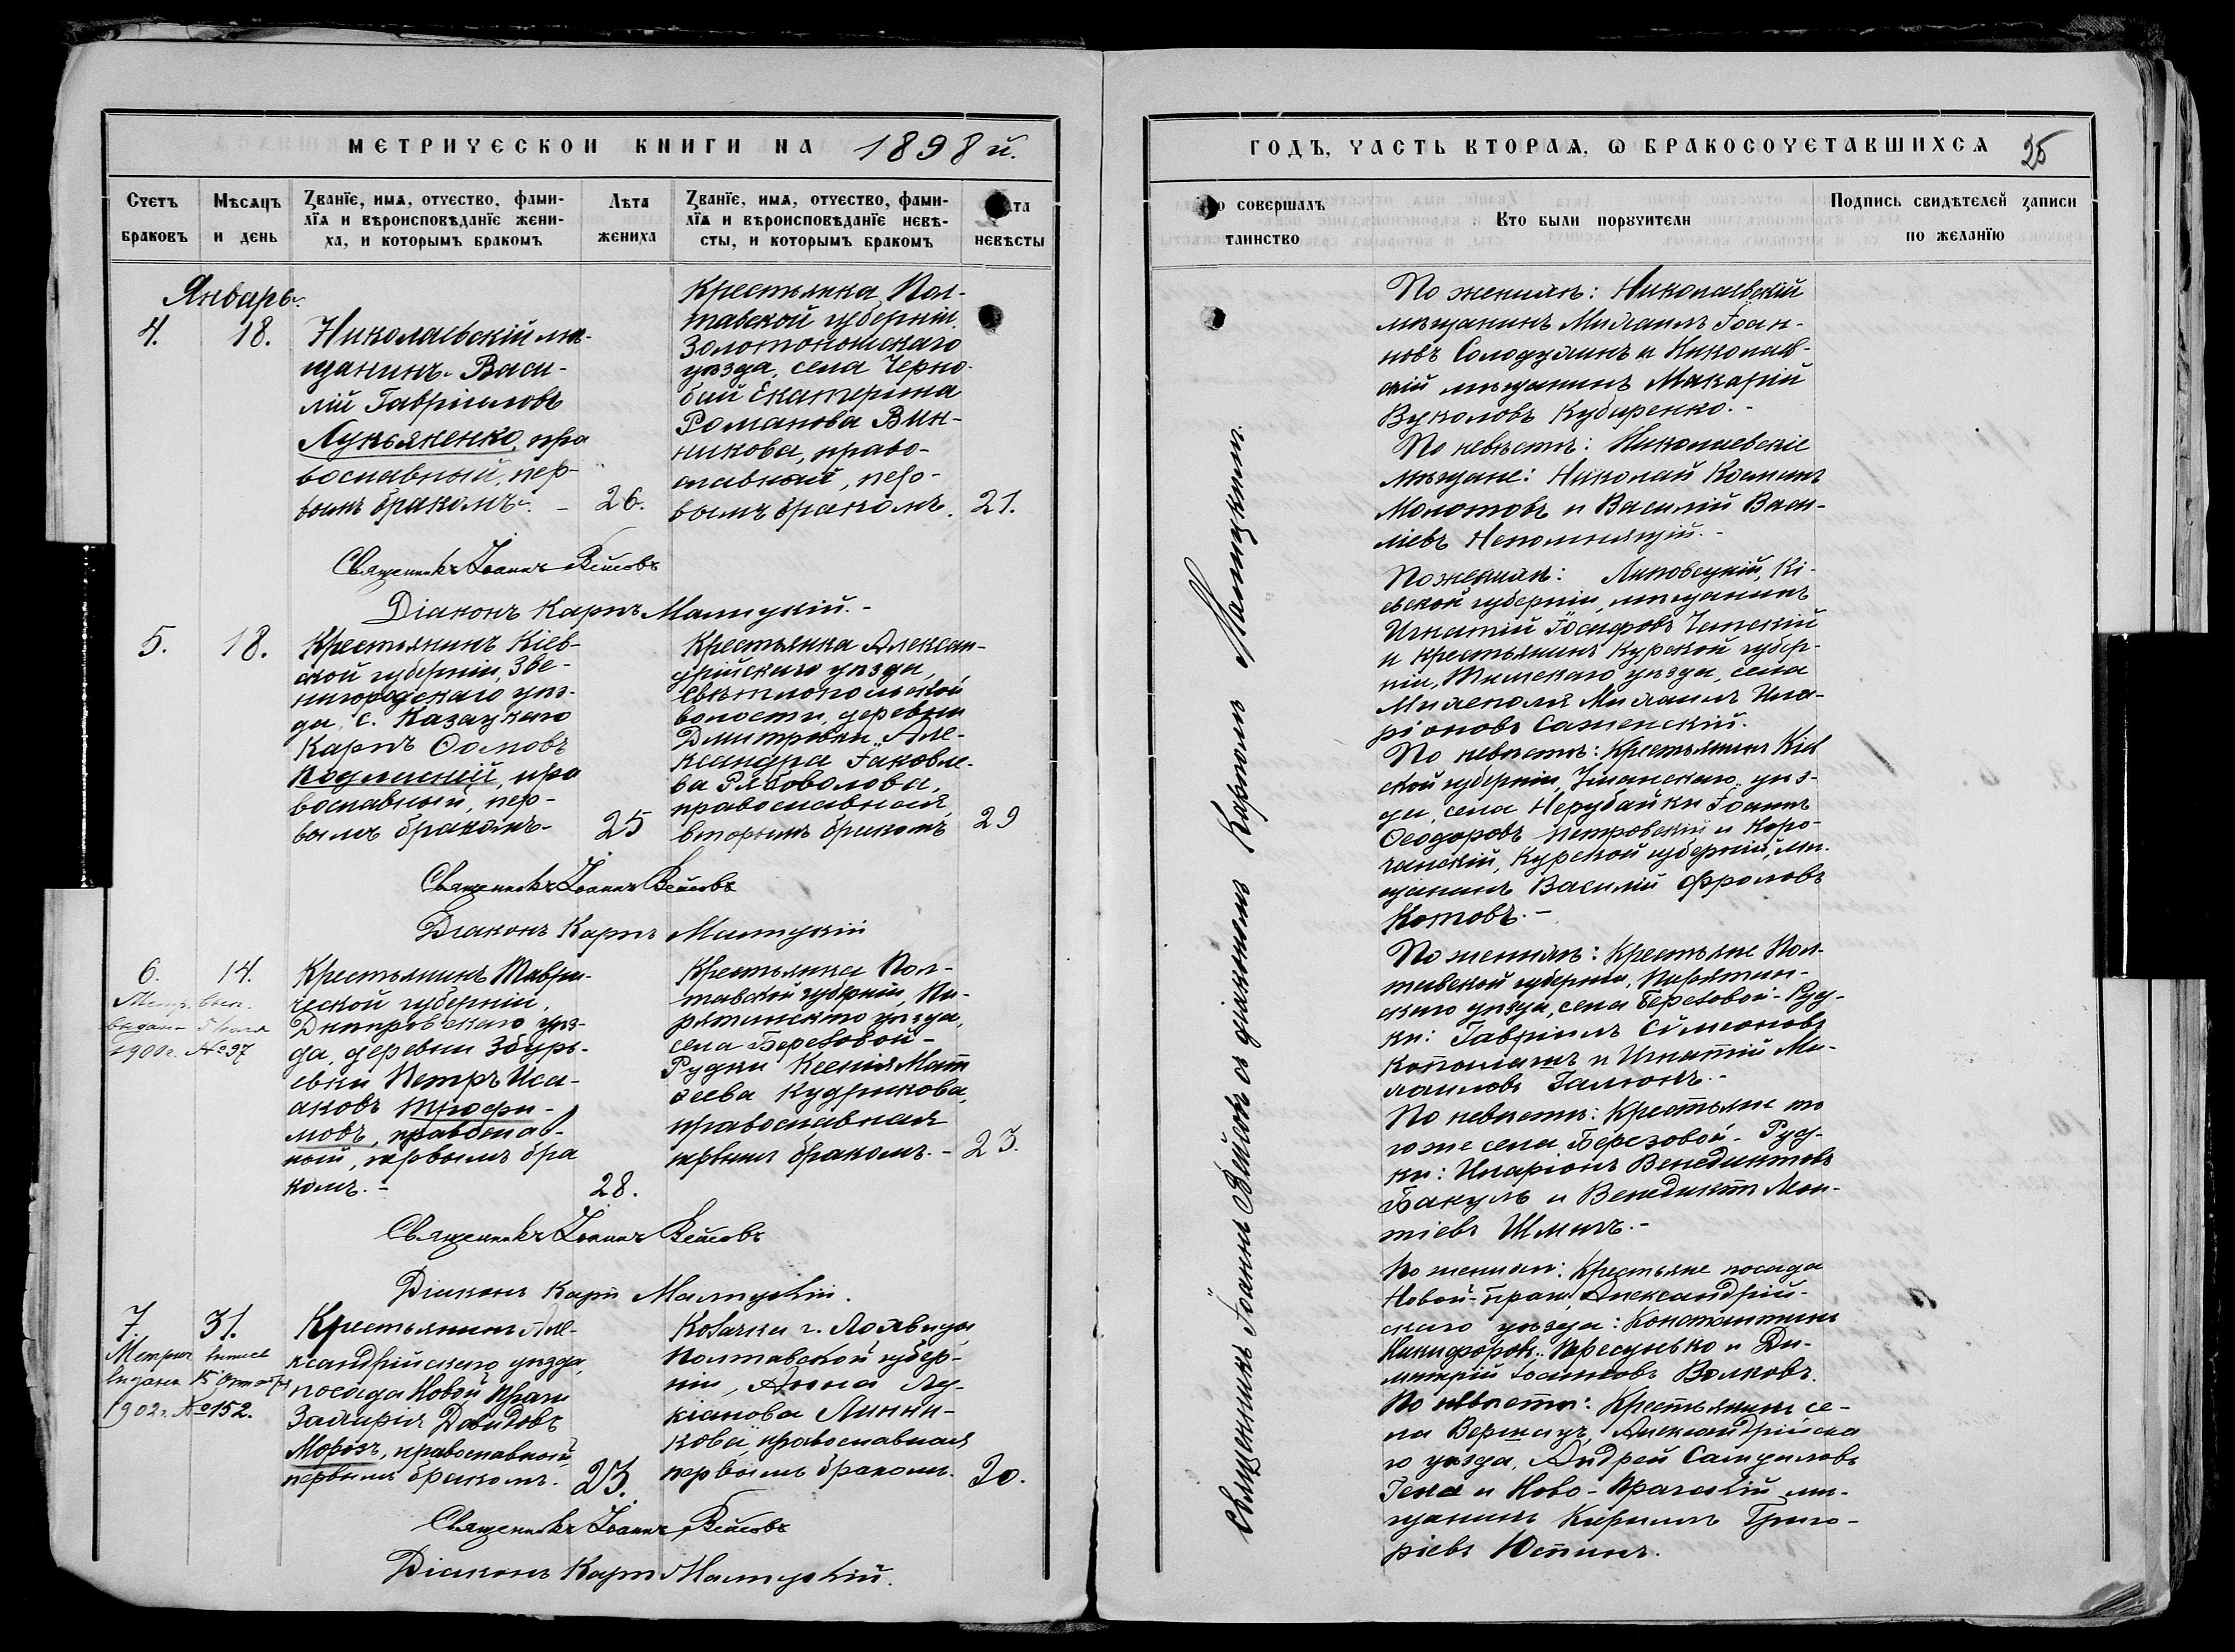 МЕТРИЧЕСКОЙ КНИГИ НА 1898 й.
Счетъ браковъ
Мѣсяцъ и день
Званїе, имя, отчество, фами-
лїя и вѣроисповѣданїе жени-
ха, и которымъ бракомъ
Лѣта жениха
Званїе, имя, отчество, фами-
лїя и вѣроисповѣданїе невѣ-
сты, и которымъ бракомъ
невѣсты
Январь
4.
18.
Николаевскій мѣ-
щанинъ Васи-
лій Гавріиловъ
Лукьяненко, пра
вославный, пер-
вымъ бракомъ. -
26.
Крестьянка Пол-
тавской губерніи
Золотоношскаго
уѣзда, села Черно-
бай Екатерина
Романова Вин-
никова, право-
славной, пер-
вымъ бракомъ.
21.
Священникъ Іоаннъ Вейсовъ
Діаконъ Карпъ Малицкій. -
5.
18.
Крестьянинъ Кіев-
ской губерніи, Зве-
нигородскаго уѣз-
да, с. Казацкаго
Карпъ Ѳомовъ
пра
вославный, пер-
вымъ бракомъ-
25
Крестьянка Алексан-
дрійскаго уѣзда,
Свѣтлопольской
волости, деревни
Дмитровки Але-
ксандра Іаковле-
ва Рябоволова,
православной,
вторымъ бракомъ
29
Священникъ Іоаннъ Вейсовъ
Діаконъ Карпъ Малицкій
6.
14.
Метр. вып.
выдан.
1900г. №97
Крестьянинъ Таври-
ческой губерніи,
Днѣпровскаго уѣз-
да, деревни Збурь-
евки Петръ Иса-
аковъ Трофи-
мовъ, православ-
ный, первымъ бра
комъ. -
28.
Крестьянка Пол-
тавской губерніи, Пи-
рятинскаго уѣзда,
села Березовой-
Рудки Ксенія Мат
ѳеева Кудрикова,
православная
первымъ бракомъ. -
23.
Священникъ Іоаннъ Вейсовъ
Діаконъ Карпъ Малицкій.
7
31.
Метрич выпись
выдана 15 Октября
1902г. №152.
Крестьянинъ Але-
ксандрійскаго уѣзда,
посада Новой Праги
Захарія Давидовъ
Морозъ, православный
первымъ бракомъ.
23.
Козачка г. Лохвицы
Полтавской губер-
ніи, Анна Лу-
кіанова Линни-
кова, православная
первымъ бракомъ.
20.
Священникъ Іоаннъ Вейсовъ
Діаконъ Карпъ Малицкій.
ГОДЪ, ЧАСТЬ ВТОРАЯ, Ѡ БРАКОСОЧЕТАВШИХСЯ
25
совершалъ
таинство
Кто были поручители
Подпись свидѣтелей записи
по желанїю
Священникъ Іоаннъ Вейсовъ съ діакономъ Карпомъ Малицкимъ.
По женихѣ: Николаевскій
мѣщанинъ Михаилъ Іоан-
новъ Солодухинъ и Николаев-
скій мѣщанинъ Макарій
Вуколовъ Кубаренко. -
По невѣстѣ: Николаевскіе
мѣщане: Николай Косминъ
Молотовъ и Василій Васи-
ліевъ Непомнящій. -
По женихѣ: Липовецкій, Кі-
евской губерніи, мѣщанинъ
Игнатій Іосифовъ
и крестьянинъ Курской губер-
ніи, Тимскаго уѣзда, села
Михаилъ Ила-
ріоновъ Саженскій.
По невѣстѣ: Крестьянинъ Кіев
ской губерніи, Уманскаго уѣз-
да, села Нерубайки Іоаннъ
Ѳеодоровъ Петровскій и Коро-
чанскій, Курской губерніи, мѣ-
щанинъ Василій Фроловъ
Котовъ. -
По женихѣ: Крестьяне Пол-
тавской губерніи, Пирятин-
скаго уѣзда, села Березовой-Руд-
ки: Гавріилъ Симеоновъ
и Игнатій Ми-
хаиловъ Галюкъ. -
По невѣстѣ: Крестьяне то
гоже села Березовой-Руд-
ки: Иларіонъ Венедиктовъ
Бакулъ и Венедиктъ Мои-
По женихѣ: Крестьяне посада
Новой-Праги, Александрій-
скаго уѣзда: Константинъ
Никифоровъ и Ди-
митрій Іоанновъ Волковъ.
По невѣстѣ: Крестьянинъ се-
ла Вершацъ, Александрійска
го уѣзда, Андрей Самуиловъ
и Ново-Пражскій мѣ-
щанинъ Кириллъ Григо-
ріевъ Юстинъ.